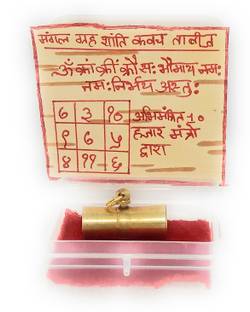 मंगल ग्रह शांति कवच ताबीज
ॐ क्रां क्रीं क्रौं सः भौमाय नमः
नमः निर्भय अस्तुः
८ ३ १०
९ ७ ५
४ ११ ६
अभिमंत्रित १०
हजार मंत्रो
द्वारा